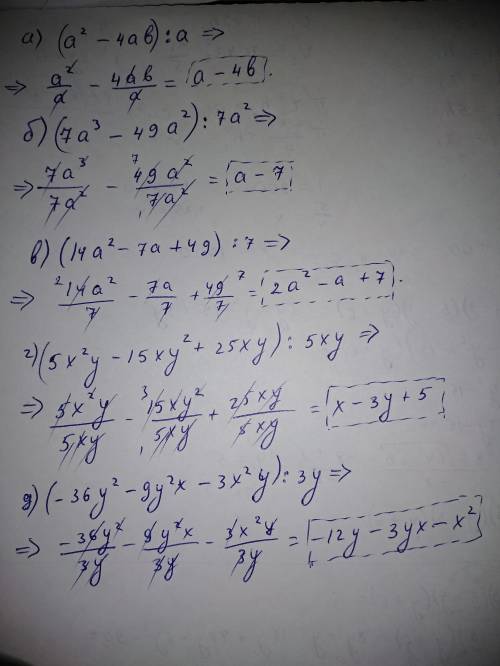 а) (a² - 4ab) : a =>
=> a²/a - 4ab/a = a - 4b.
б) (7a³ - 49a²) : 7a² =>
=> 7a³/7a² - 49a²/7a² = a - 7
в) (14a² - 7a + 49) : 7 =>
=> 14a²/7 - 7a/7 + 49/7 = 2a² - a + 7.
г) (5x²y - 15xy² + 25xy) : 5xy =>
=> 5x²y/5xy - 15xy²/5xy + 25xy/5xy = x - 3y + 5
д) (-36y² - 9y²x - 3x²y) : 3y =>
=> -36y²/3y - 9y²x/3y - 3x²y/3y = -12y - 3yx - x²